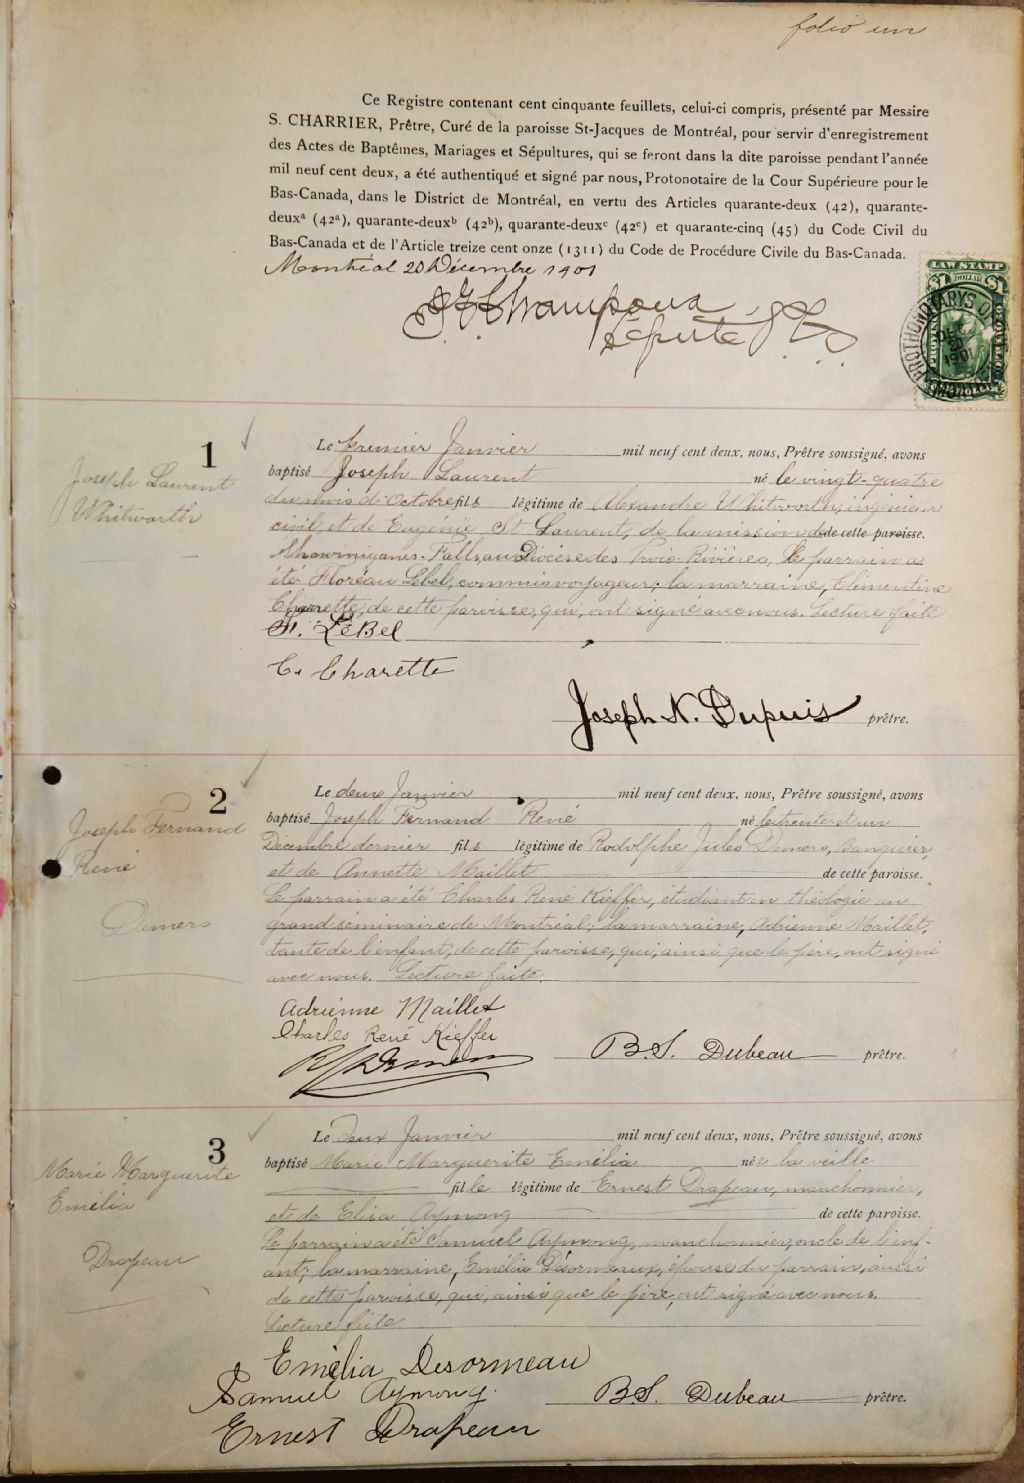 folio un
Ce Registre contenant cent cinquante feuillets, celui-ci compris, présenté par Messire
S. CHARRIER, Prêtre, Curé de la paroisse St-Jacques de Montréal, pour servir d'enregistrement
des Actes de Baptêmes, Mariages et Sépultures, qui se feront dans la dite paroisse pendant l'année
mil neuf cent deux, a été authentiqué et signé par nous, Protonotaire de la Cour Supérieure pour le
Bas-Canada, dans le District de Montréal, en vertu des Articles quarante-deux (42), quarante-
deuxᵃ (42ᵃ), quarante-deuxᵇ (42ᵇ), quarante-deuxᶜ (42ᶜ) et quarante-cinq (45) du Code Civil du
Bas-Canada et de l'Article treize cent onze (1311) du Code de Procédure Civile du Bas-Canada.
Montréal 20 Décembre 1901
Champoux
Député P.C.S.
LAW STAMP
$1 DOLLAR $1
PROTHONOTARYS OFFICE
DEC
20
1901
MONTREAL
1
Joseph Laurent
Whitworth
Le premier Janvier mil neuf cent deux, nous, Prêtre soussigné, avons
baptisé Joseph Laurent né le vingt-quatre
du mois d'Octobre fils légitime de Alexandre Whitworth, ingénieur
civil, et de Eugénie St Laurent, de la mission de de cette paroisse.
Shawinigane-Falls, au Diocèse des Trois-Rivières, Le parrain a
été Floréau Lebel, commis voyageur; la marraine, Clémentine
Charette, de cette paroisse, qui, ont signé avec nous. Lecture faite
F. LeBel
C. Charette
Joseph N. Dupuis prêtre.
2
Joseph Fernand
René
Demers
Le deux Janvier mil neuf cent deux, nous, Prêtre soussigné, avons
baptisé Joseph Fernand René né le trente et un
Décembre dernier fils légitime de Rodolphe Jules Demers, banquier,
et de Annette Maillet de cette paroisse.
Le parrain a été Charles René Kieffer, étudiant en théologie au
grand séminaire de Montréal; la marraine, Adrienne Maillet,
tante de l'enfant, de cette paroisse, qui, ainsi que le père, ont signé
avec nous. Lecture faite.
Adrienne Maillet
Charles René Kieffer
RJDemers
B.S. Dubeau prêtre.
3
Marie Marguerite
Emélia
Drapeau
Le Deux Janvier mil neuf cent deux, nous, Prêtre soussigné, avons
baptisé Marie Marguerite Emélia née la veille
fille légitime de Ernest Drapeau, manchonnier,
et de Eliza Aymong de cette paroisse.
Le parrain a été Samuel Aymong, manchonnier, oncle de l'enf-
ant; la marraine, Emélia Désormeaux, épouse du parrain, aussi
de cette paroisse, qui, ainsi que le père, ont signé avec nous.
Lecture faite
Emélia Desormeau
Samuel Aymong.
Ernest Drapeau
B.S. Dubeau prêtre.